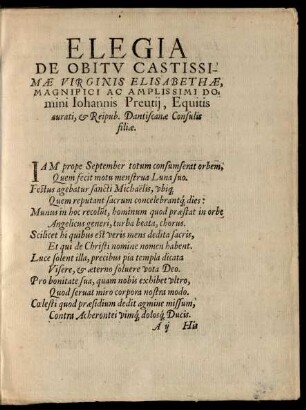 ELEGIA
DE OBITV CASTISSI-
MÆ VIRGINIS ELISABETHÆ,
MAGNIFICI AC AMPLISSIMI DO-
mini Iohannis Preutij, Equitis
aurati, & Reipub. Dantiscanæ Consulis
filiæ.
IAM prope September totum consumserat orbem,
Quem fecit motu menstrua Luna suo.
Festus agebatur sancti Michaëlis, ubiq́;
Quem reputant sacrum concelebrantq́; dies:
Munus in hoc recolũt, hominum quod præstat in orbe
Angelicus generi, turba beata, chorus.
Scilicet hi quibus est veris mens dedita sacris,
Et qui de Christi nomine nomen habent.
Luce solent illa, precibus pia templa dicata
Visere, & æterno soluere vota Deo.
Pro bonitate sua, quam nobis exhibet vltro,
Quod seruat miro corpora nostra modo.
Cœlesti quod præsidium dedit agmine missum,
Contra Acherontei vimq́; dolosq́; Ducis.
A ij His